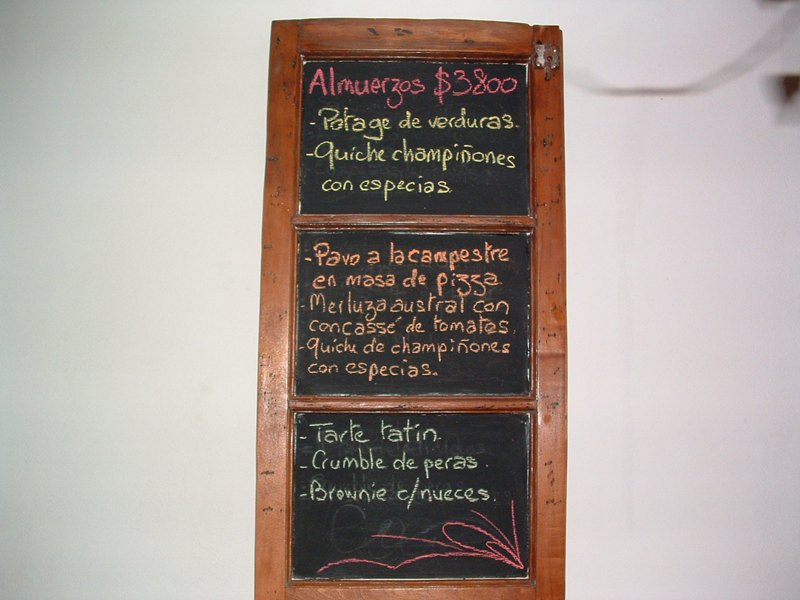 Almuerzos $3800
- Potage de verduras.
- Quiche champiñones
con especias.
- Pavo a la campestre
en masa de pizza
- Merluza austral con
concassé de tomates.
- Quiche de champiñones
con especias.
- Tarte tatin.
- Crumble de peras.
- Brownie c/nueces.